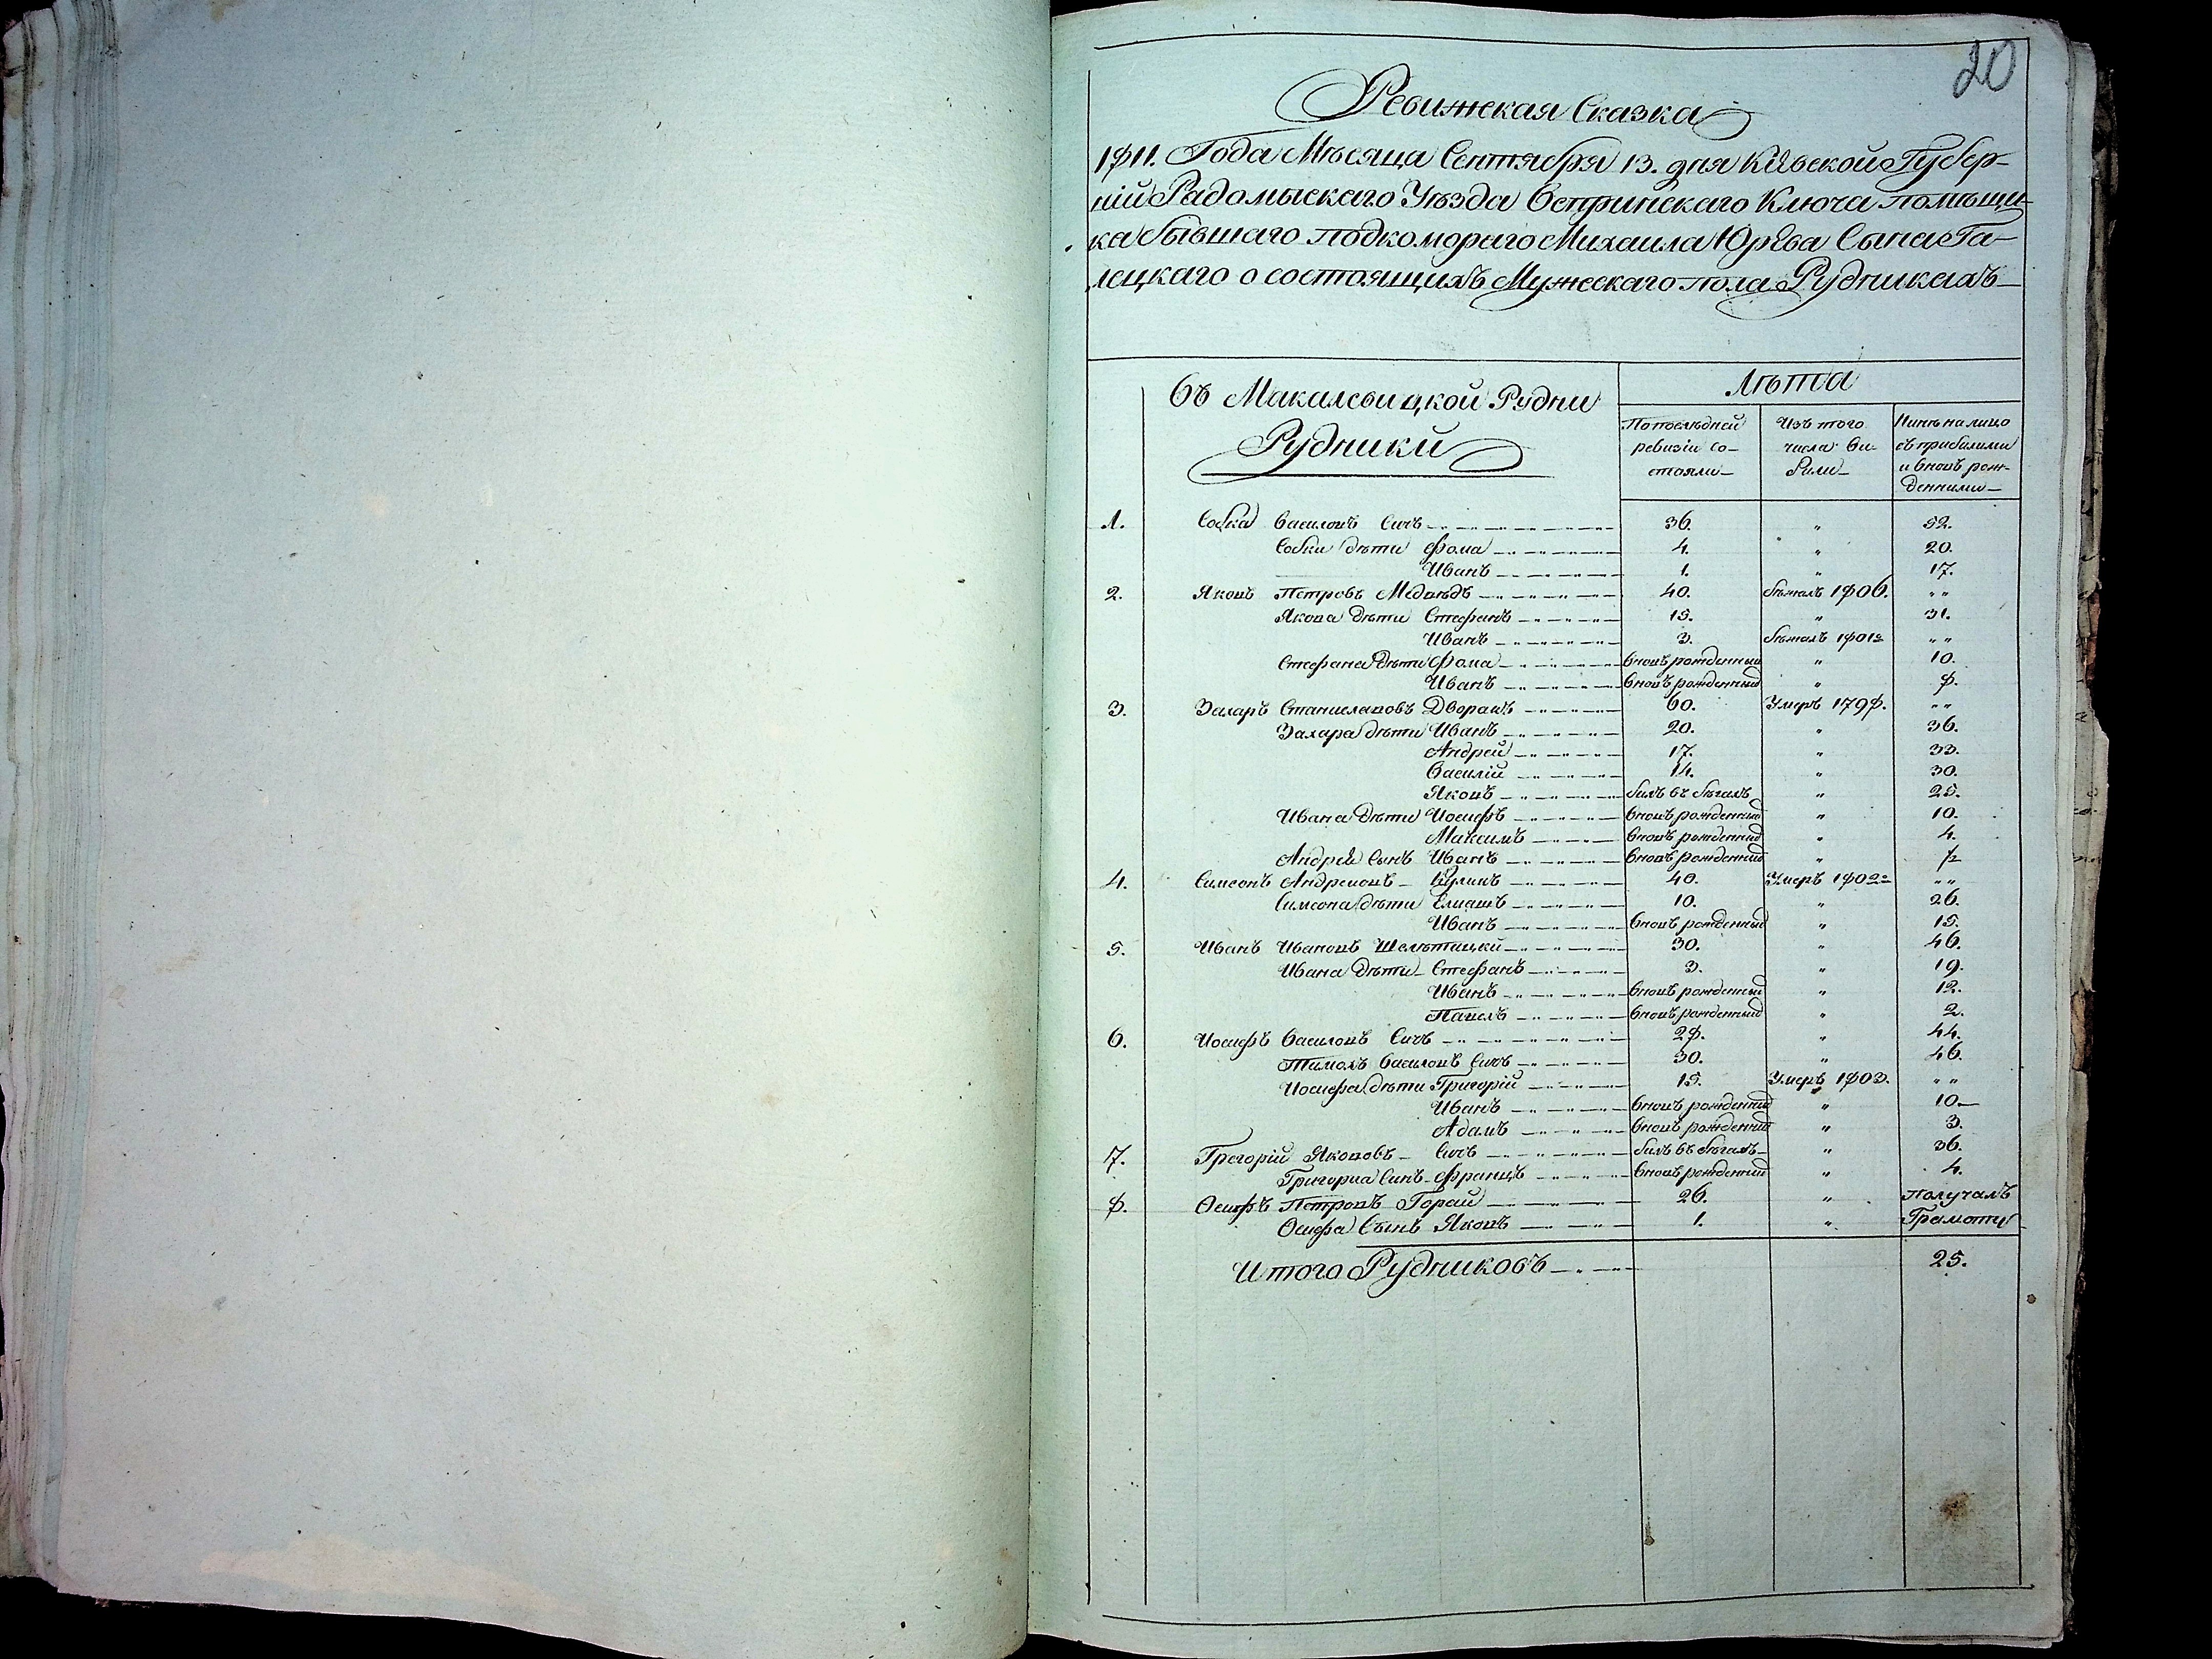 20
Ревижская Сказка
1811. Года Мѣсяца Сентября 13. дня Кіевской Губер-
ніи Радомыскаго Уѣзда Вепринскаго Ключа помѣщи-
ка бывшаго подкомораго Михаила Юрьева Сына Га-
лецкаго о состоящихъ Мужескаго пола Рудникахъ
Въ Макалевицкой Рудни
Рудники
Лѣта
По последней ревизіи со- стояли
Изъ того числа ви- били
Нинѣ на лицо съ прибилими и вновъ рож- денними
1. Собка Василовъ Сичъ 36. " 52.
Собки дѣти Фома 4. " 20.
Иванъ 1. " 17.
2. Яковъ Петровъ Медвѣдъ 40. бѣжалъ 1806. " "
Якова дѣти Стефанъ 15. " 31.
Иванъ 3. бѣжалъ 1801го " "
Стефана дѣти Фома вновъ рожденный " 10.
Иванъ вновъ рожденный " 8.
3. Захаръ Станиславовъ Дворакъ 60. Умеръ 1798. " "
Захара дѣти Иванъ 20. " 36.
Андрей 17. " 33.
Василій 14. " 30.
Яковъ билъ въ бѣгахъ " 25.
Ивана дѣти Иосифъ вновъ рожденный " 10.
Максимъ вновъ рожденний " 4.
Андрея Сынъ Иванъ вновъ рожденний " ½
4. Симеонъ Андреиовъ Куликъ 40. Умеръ 1802го " "
Симеона дѣти Елиашъ 10. " 26.
Иванъ вновъ рожденный " 15.
5. Иванъ Ивановъ 30. " 46.
Ивана дѣти Стефанъ 3. " 19.
Иванъ вновъ рожденный " 12.
Павелъ вновъ рожденный " 2.
6. Иосифъ Василовъ Сичъ 28. " 44.
Тимохъ Василовъ Сичъ 30. " 46.
Иосифа дѣти Григорій 15. Умеръ 1803. " "
Иванъ вновъ рожденний " 10.
Адамъ вновъ рожденний " 3.
7. Грегорій Якововъ Сичъ билъ въ бѣгахъ " 36.
Григориа Синъ Францъ вновъ рожденний " 4.
8. Осифъ Петровъ Горай 26. " Получалъ
Осифа Сынъ Яковъ 1. " Грамоту
Итого Рудниковъ 25.